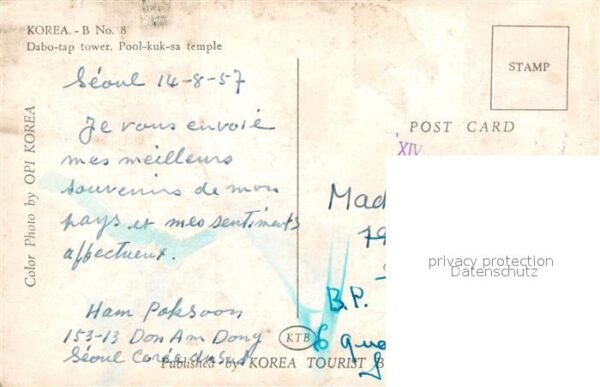 KOREA. - B No. 8
Dabo-tap tower. Pool-kuk-sa temple
Color Photo by OPI KOREA
Séoul 14-8-57
Je vous envoie
mes meilleurs
souvenirs de mon
pays et mes sentiments
affectueux.
Ham Poksoon
153-13 Don Am Dong
Séoul Corée du Sud
KTB
Published by KOREA TOURIST B
STAMP
POST CARD
XIV
Mad
19
B.P.
6
privacy protection
Datenschutz